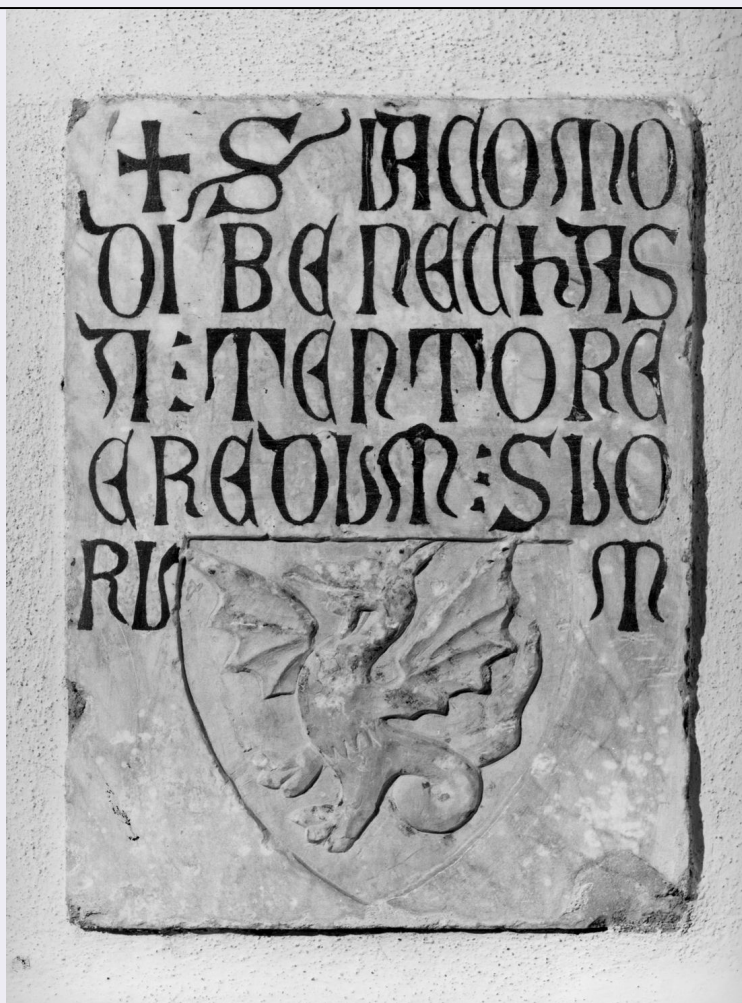 + S IACOMO
DI BENECHAS
A : TENTORE
EREDUM : SUO
RU M